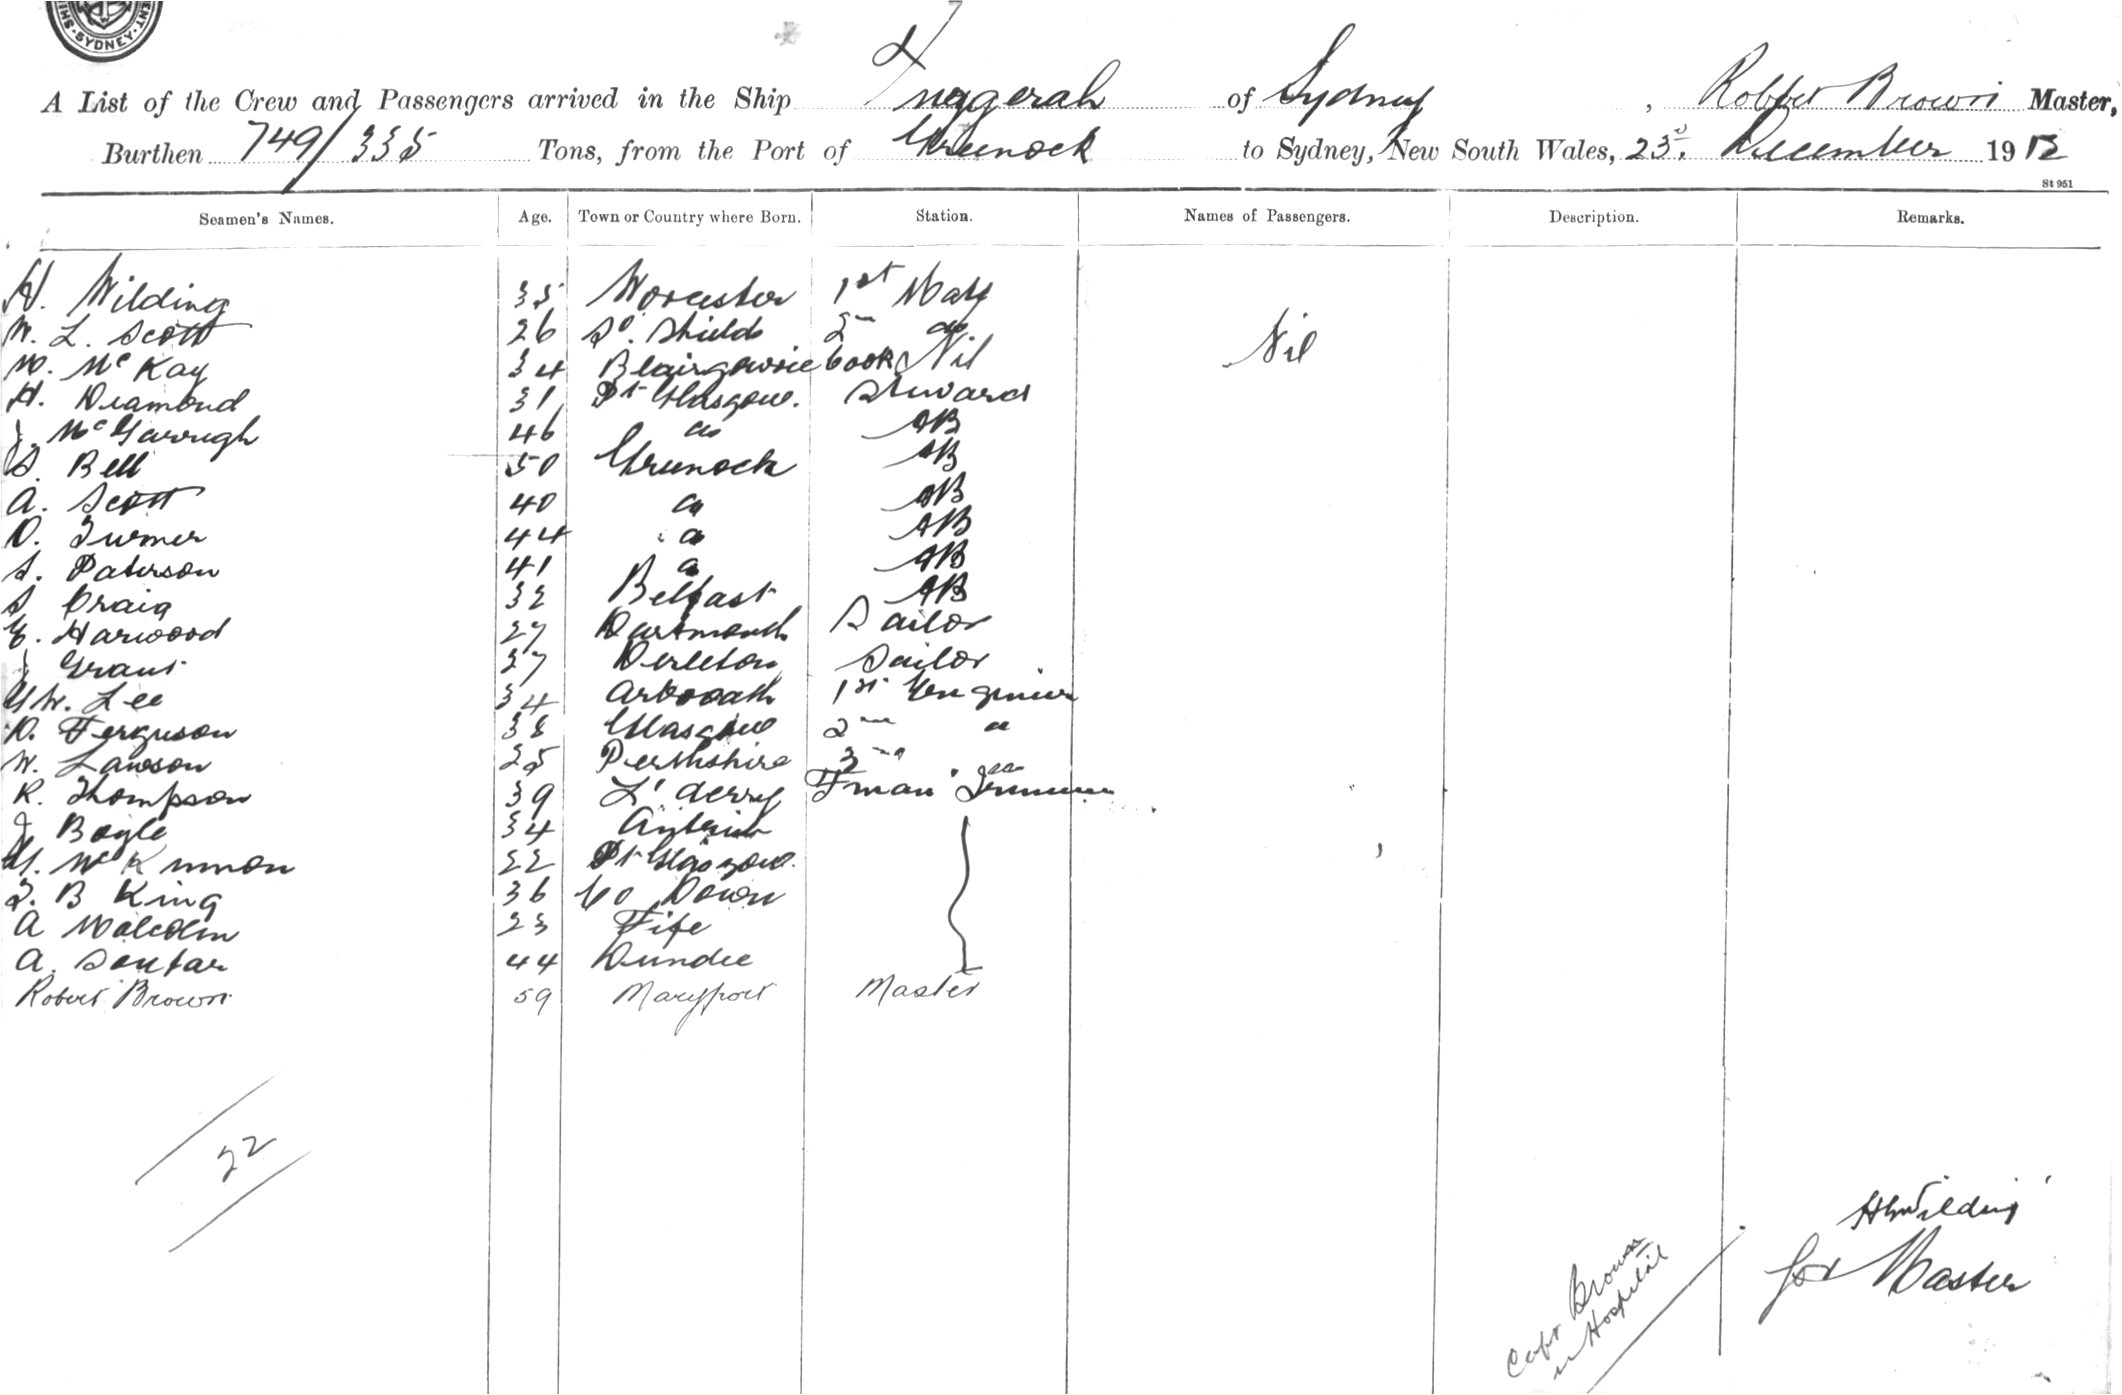 SYDNEY
A List of the Crew and Passengers arrived in the Ship Tuggerah of Sydney, Robert Brown Master,
Burthen 749/335 Tons, from the Port of Greenock to Sydney, New South Wales, 23rd December 1912
St 951
Seamen's Names. Age. Town or Country where Born. Station. Names of Passengers. Description. Remarks.
H. Wilding 35 Worcester 1st Mate
W. L. Scott 26 So. Shields 2nd do Nil
W. McKay 34 Blairgowrie Cook Nil
H. Diamond 31 Pt Glasgow. Steward
J. McGarrigh 46 do AB
S. Bell 50 Greenock AB
A. Scott 40 do AB
D. Turner 44 do AB
S. Paterson 41 do AB
S Craig 32 Belfast AB
E. Harwood 27 Dartmouth Sailor
J Grant 27 Sailor
G W. Lee 34 Arbroath 1st Engineer
D. Ferguson 38 Glasgow 2nd do
W. Lawson 25 Perthshire 3rd do
R. Thompson 39 L'derry Fman Trimmer
J Boyle 34 Antrim
McKinnon 22 Pt Glasgow.
J. B King 36 Co Down
A Malcolm 23 Fife
A. Soutar 44 Dundee
Robert Brown 59 Maryport Master
22
H Wilding
for Master
Capt Brown
in Hospital